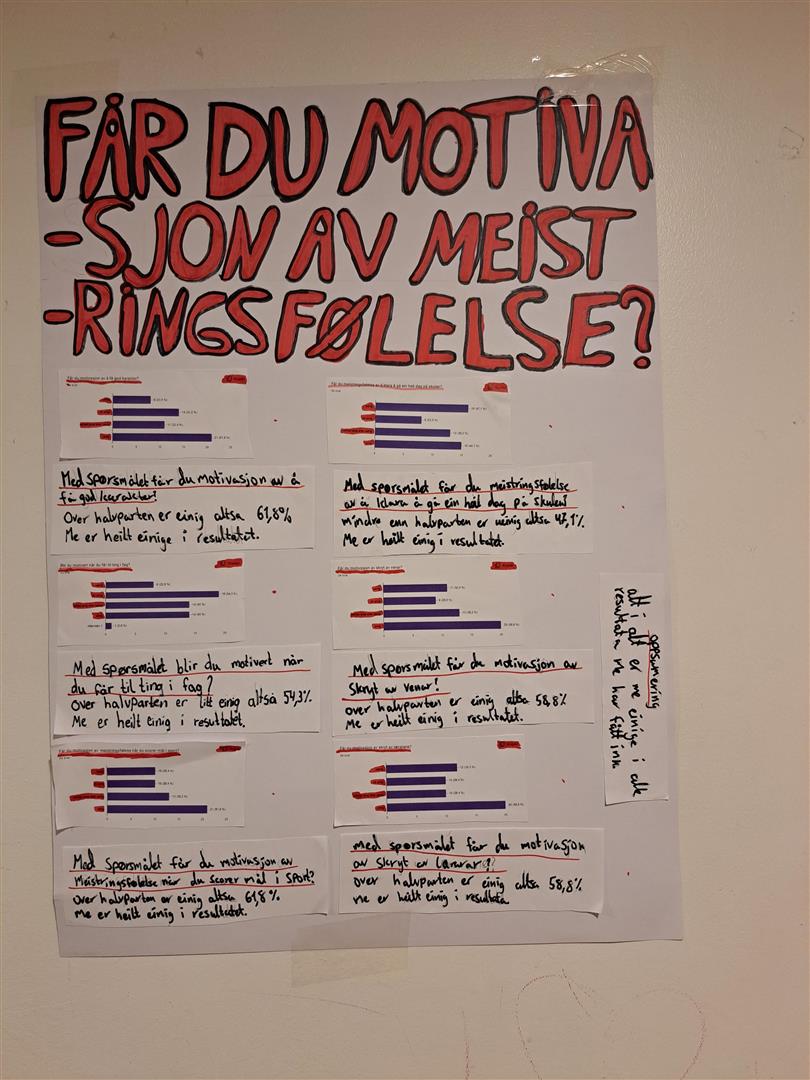 FÅR DU MOTIVA
-SJON AV MEIST
-RINGSFØLELSE?
Får du motivasjon av å få god karakter?
Med spørsmålet får du motivasjon av å
få god karakter!
Over halvparten er einig altsa 61,8%
Me er heilt einige i resultatet.
Får du meistringsfølelse av å klara å gå ein heil dag på skulen?
Med spørsmålet får du meistringsfølelse
av å klara å gå ein heil dag på skulen?
mindre enn halvparten er ueinig altsa 47,1%.
Me er heilt einig i resultatet.
Blir du motivert når du får til ting i fag?
Med spørsmålet blir du motivert når
du får til ting i fag?
Over halvparten er litt einig altså 54,3%.
Me er heilt einig i resultatet.
Får du motivasjon av skryt av venar?
Med spørsmålet får du motivasjon av
skryt av venar!
over halvparten er einig altsa 58,8%
Me er heilt einig i resultatet.
Får du motivasjon av meistringsfølelse når du scorer mål i sport?
Med spørsmålet får du motivasjon av
Meistringsfølelse når du scorer mål i sport?
Over halvparten er einig altsa 61,8%.
Me er heilt einig i resultatet.
Får du motivasjon av skryt av lærarane?
med spørsmålet får du motivasjon
av skryt av
over halvparten er einig altsa 58,8%
me er heilt einig i resultata
oppsumering
alt i alt er me einige i alle
resultata me har fått inn